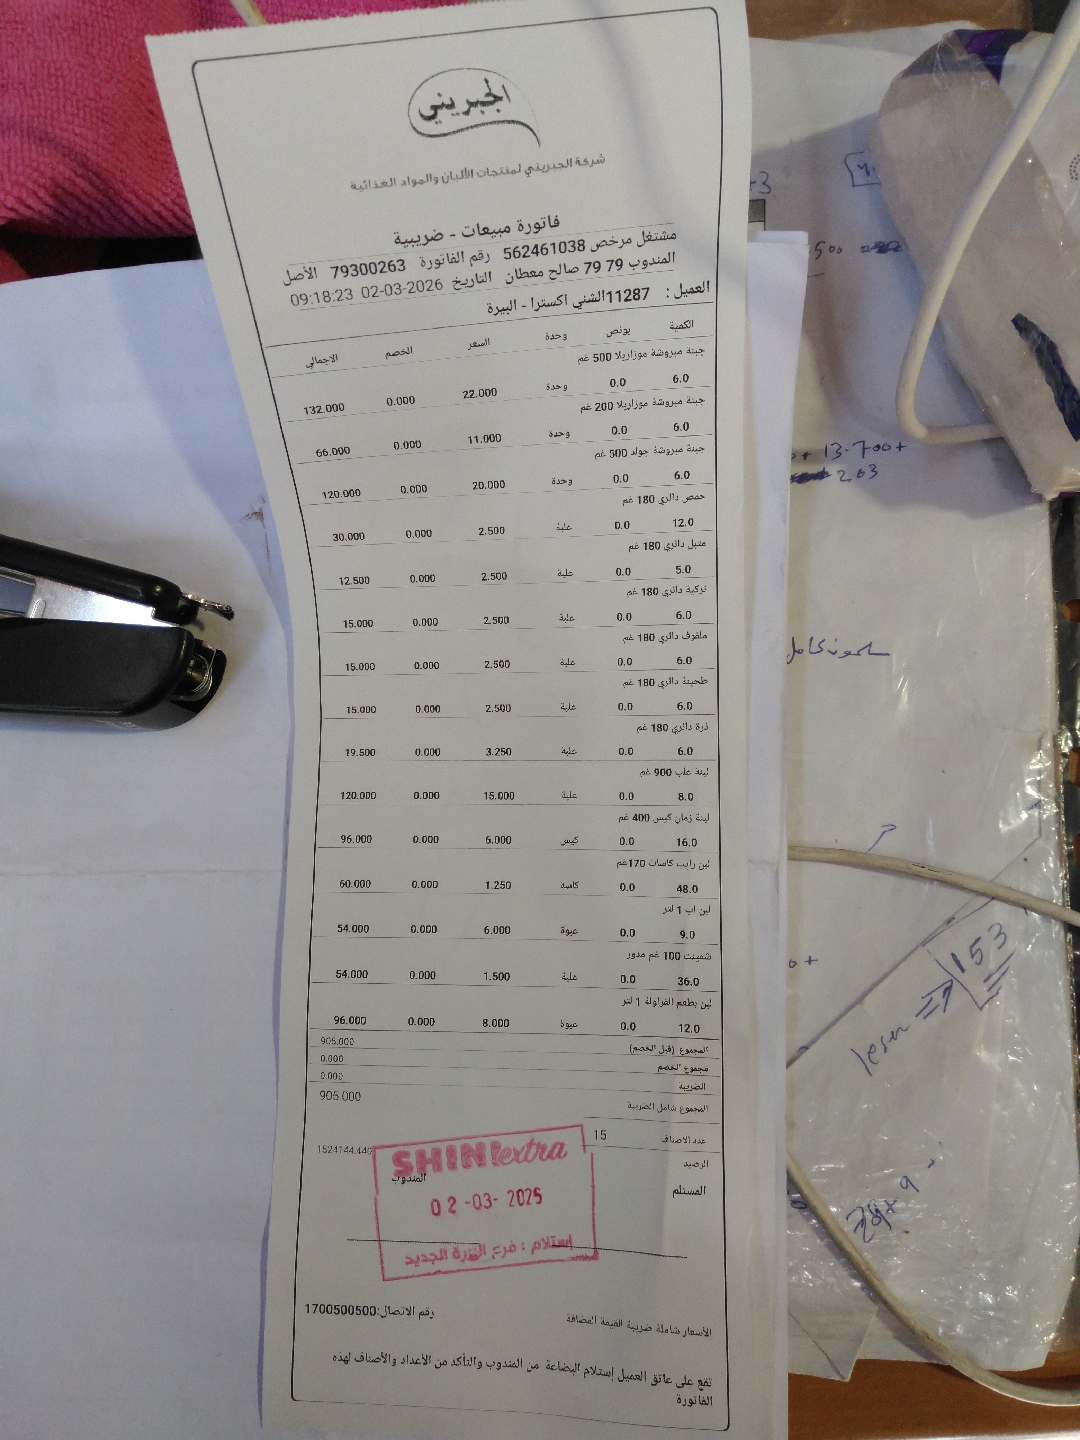 الجبريني
شركة الجبريني لمنتجات الألبان والمواد الغذائية
فاتورة مبيعات - ضريبية
مشتغل مرخص 562461038 رقم الفاتورة 79300263 الأصل
المندوب 79 79 صالح معطان التاريخ 02-03-2026 09:18:23
العميل : 11287الشني اكسترا - البيرة
الكمية بونص وحدة السعر الخصم الاجمالي
جبنة مبروشة موزاريلا 500 غم
6.0 0.0 وحدة 22.000 0.000 132.000
جبنة مبروشة موزاريلا 200 غم
6.0 0.0 وحدة 11.000 0.000 66.000
جبنة مبروشة جولد 500 غم
6.0 0.0 وحدة 20.000 0.000 120.000
حمص دائري 180 غم
12.0 0.0 علبة 2.500 0.000 30.000
متبل دائري 180 غم
5.0 0.0 علبة 2.500 0.000 12.500
تركية دائري 180 غم
6.0 0.0 علبة 2.500 0.000 15.000
ملفوف دائري 180 غم
6.0 0.0 علبة 2.500 0.000 15.000
طحينة دائري 180 غم
6.0 0.0 علبة 2.500 0.000 15.000
ذرة دائري 180 غم
6.0 0.0 علبة 3.250 0.000 19.500
لبنة علب 900 غم
8.0 0.0 علبة 15.000 0.000 120.000
لبنة زمان كيس 400 غم
16.0 0.0 كيس 6.000 0.000 96.000
لبن رايب كاسات 170غم
48.0 0.0 كاسة 1.250 0.000 60.000
لبن اب 1 لتر
9.0 0.0 عبوة 6.000 0.000 54.000
شمينت 100 غم مدور
36.0 0.0 علبة 1.500 0.000 54.000
لبن بطعم الفراولة 1 لتر
12.0 0.0 عبوة 8.000 0.000 96.000
المجموع (قبل الخصم) 905.000
مجموع الخصم 0.000
الضريبة 0.000
المجموع شامل الضريبة 905.000
عدد الاصناف 15
الرصيد 1524144.440
المستلم المندوب
SHINI extra
02-03-2025
إستلام : فرع البيرة الجديد
الأسعار شاملة ضريبة القيمة المضافة رقم الاتصال:1700500500
تقع على عاتق العميل إستلام البضاعة من المندوب والتأكد من الأعداد والأصناف لهذه
الفاتورة
+ 13.700+
203
153